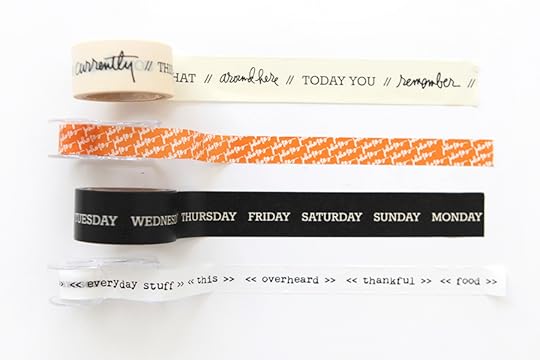 currently // THIS HAT // around here // TODAY YOU // remember //
TUESDAY WEDNESD THURSDAY FRIDAY SATURDAY SUNDAY MONDAY
>> << everyday stuff >> << this >> << overheard >> << thankful >> << food >>